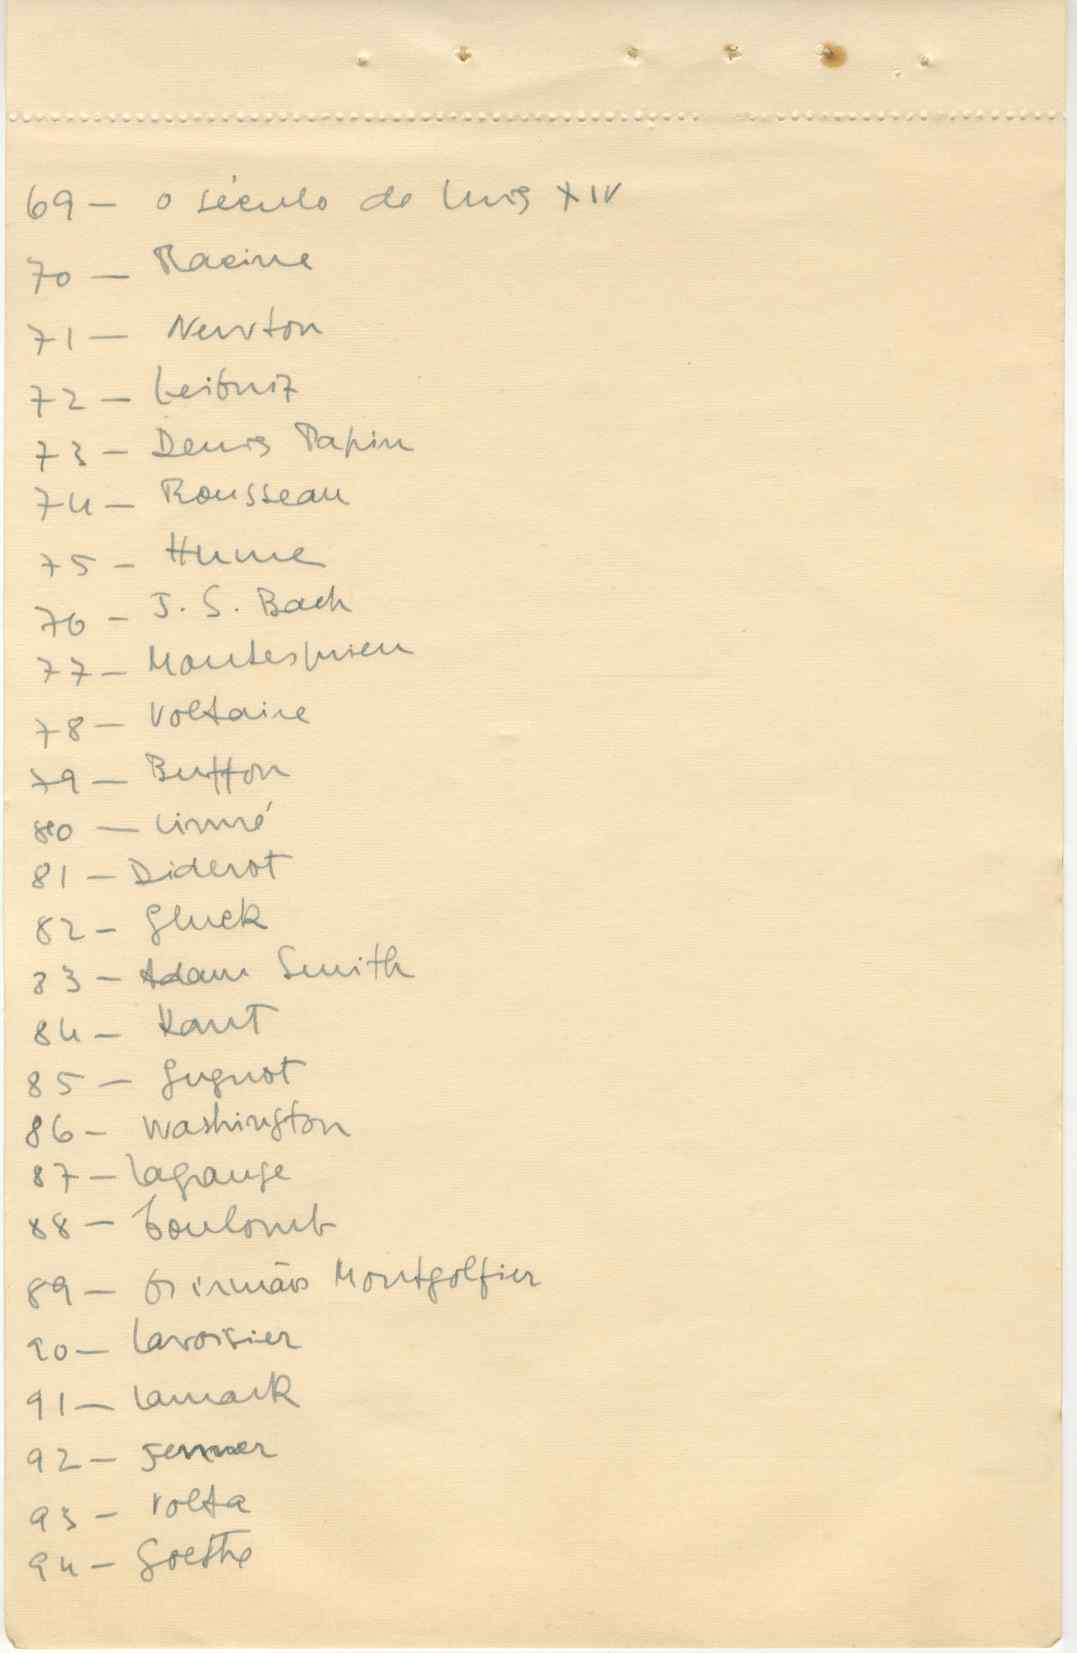 69 – O século de Luis XIV
70 – Racine
71 – Newton
72 – Leibniz
73 – Denis Papin
74 – Rousseau
75 – Hume
76 – J. S. Bach
77 – Montesquieu
78 – Voltaire
79 – Buffon
80 – Linné
81 – Diderot
82 – Gluck
83 – Adam Smith
84 – Kant
85 – Gugnot
86 – Washington
87 – Lagrange
88 – Coulomb
89 – Os irmãos Montgolfier
90 – Lavoisier
91 – Lamark
92 – Jenner
93 – Volta
94 – Goethe